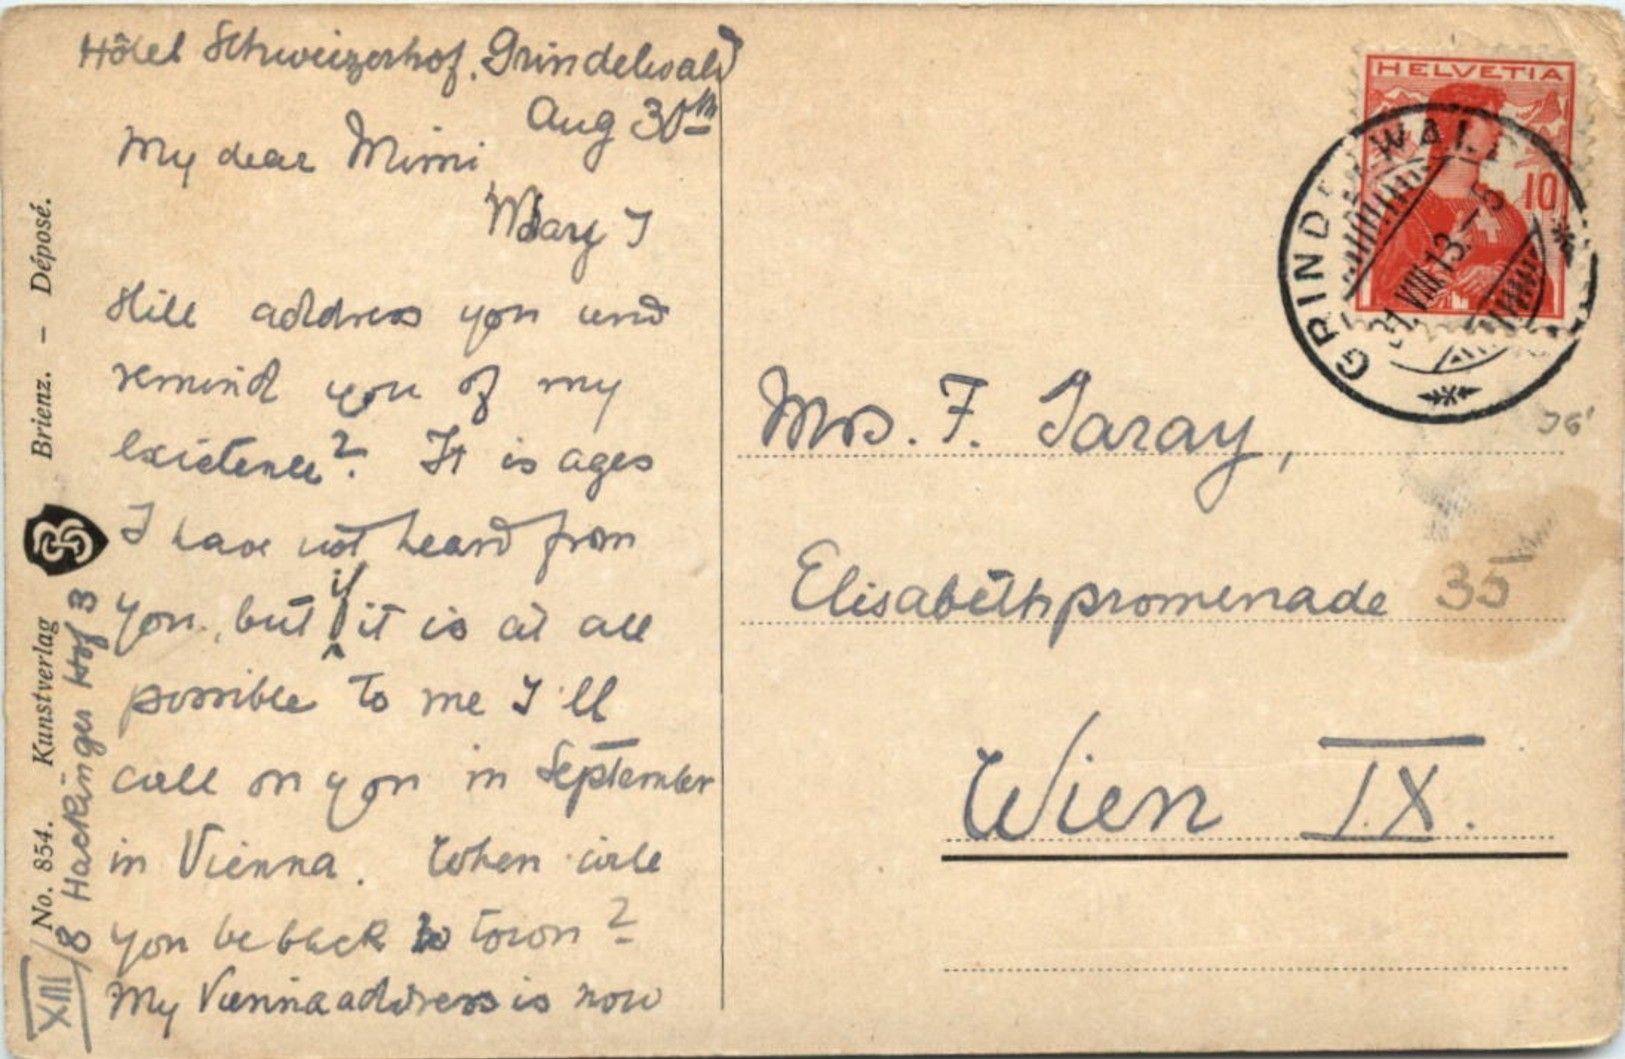 Hôtel Schweizerhof, Grindelwald
Aug 30th
My dear Mimi
May I
still address you und
remind you of my
existence? It is ages
I have not heard from
you, but if it is at all
possible to me I'll
call on you in September
in Vienna. When will
you be back to town?
My Vienna address is now
XIII/8 Hackinger Hof 3
No. 854. Kunstverlag Brienz. – Déposé.
HELVETIA
10
GRINDELWALD
31.VIII.13.–5
Mrs. F. Taray,
Elisabethpromenade 35
Wien IX.